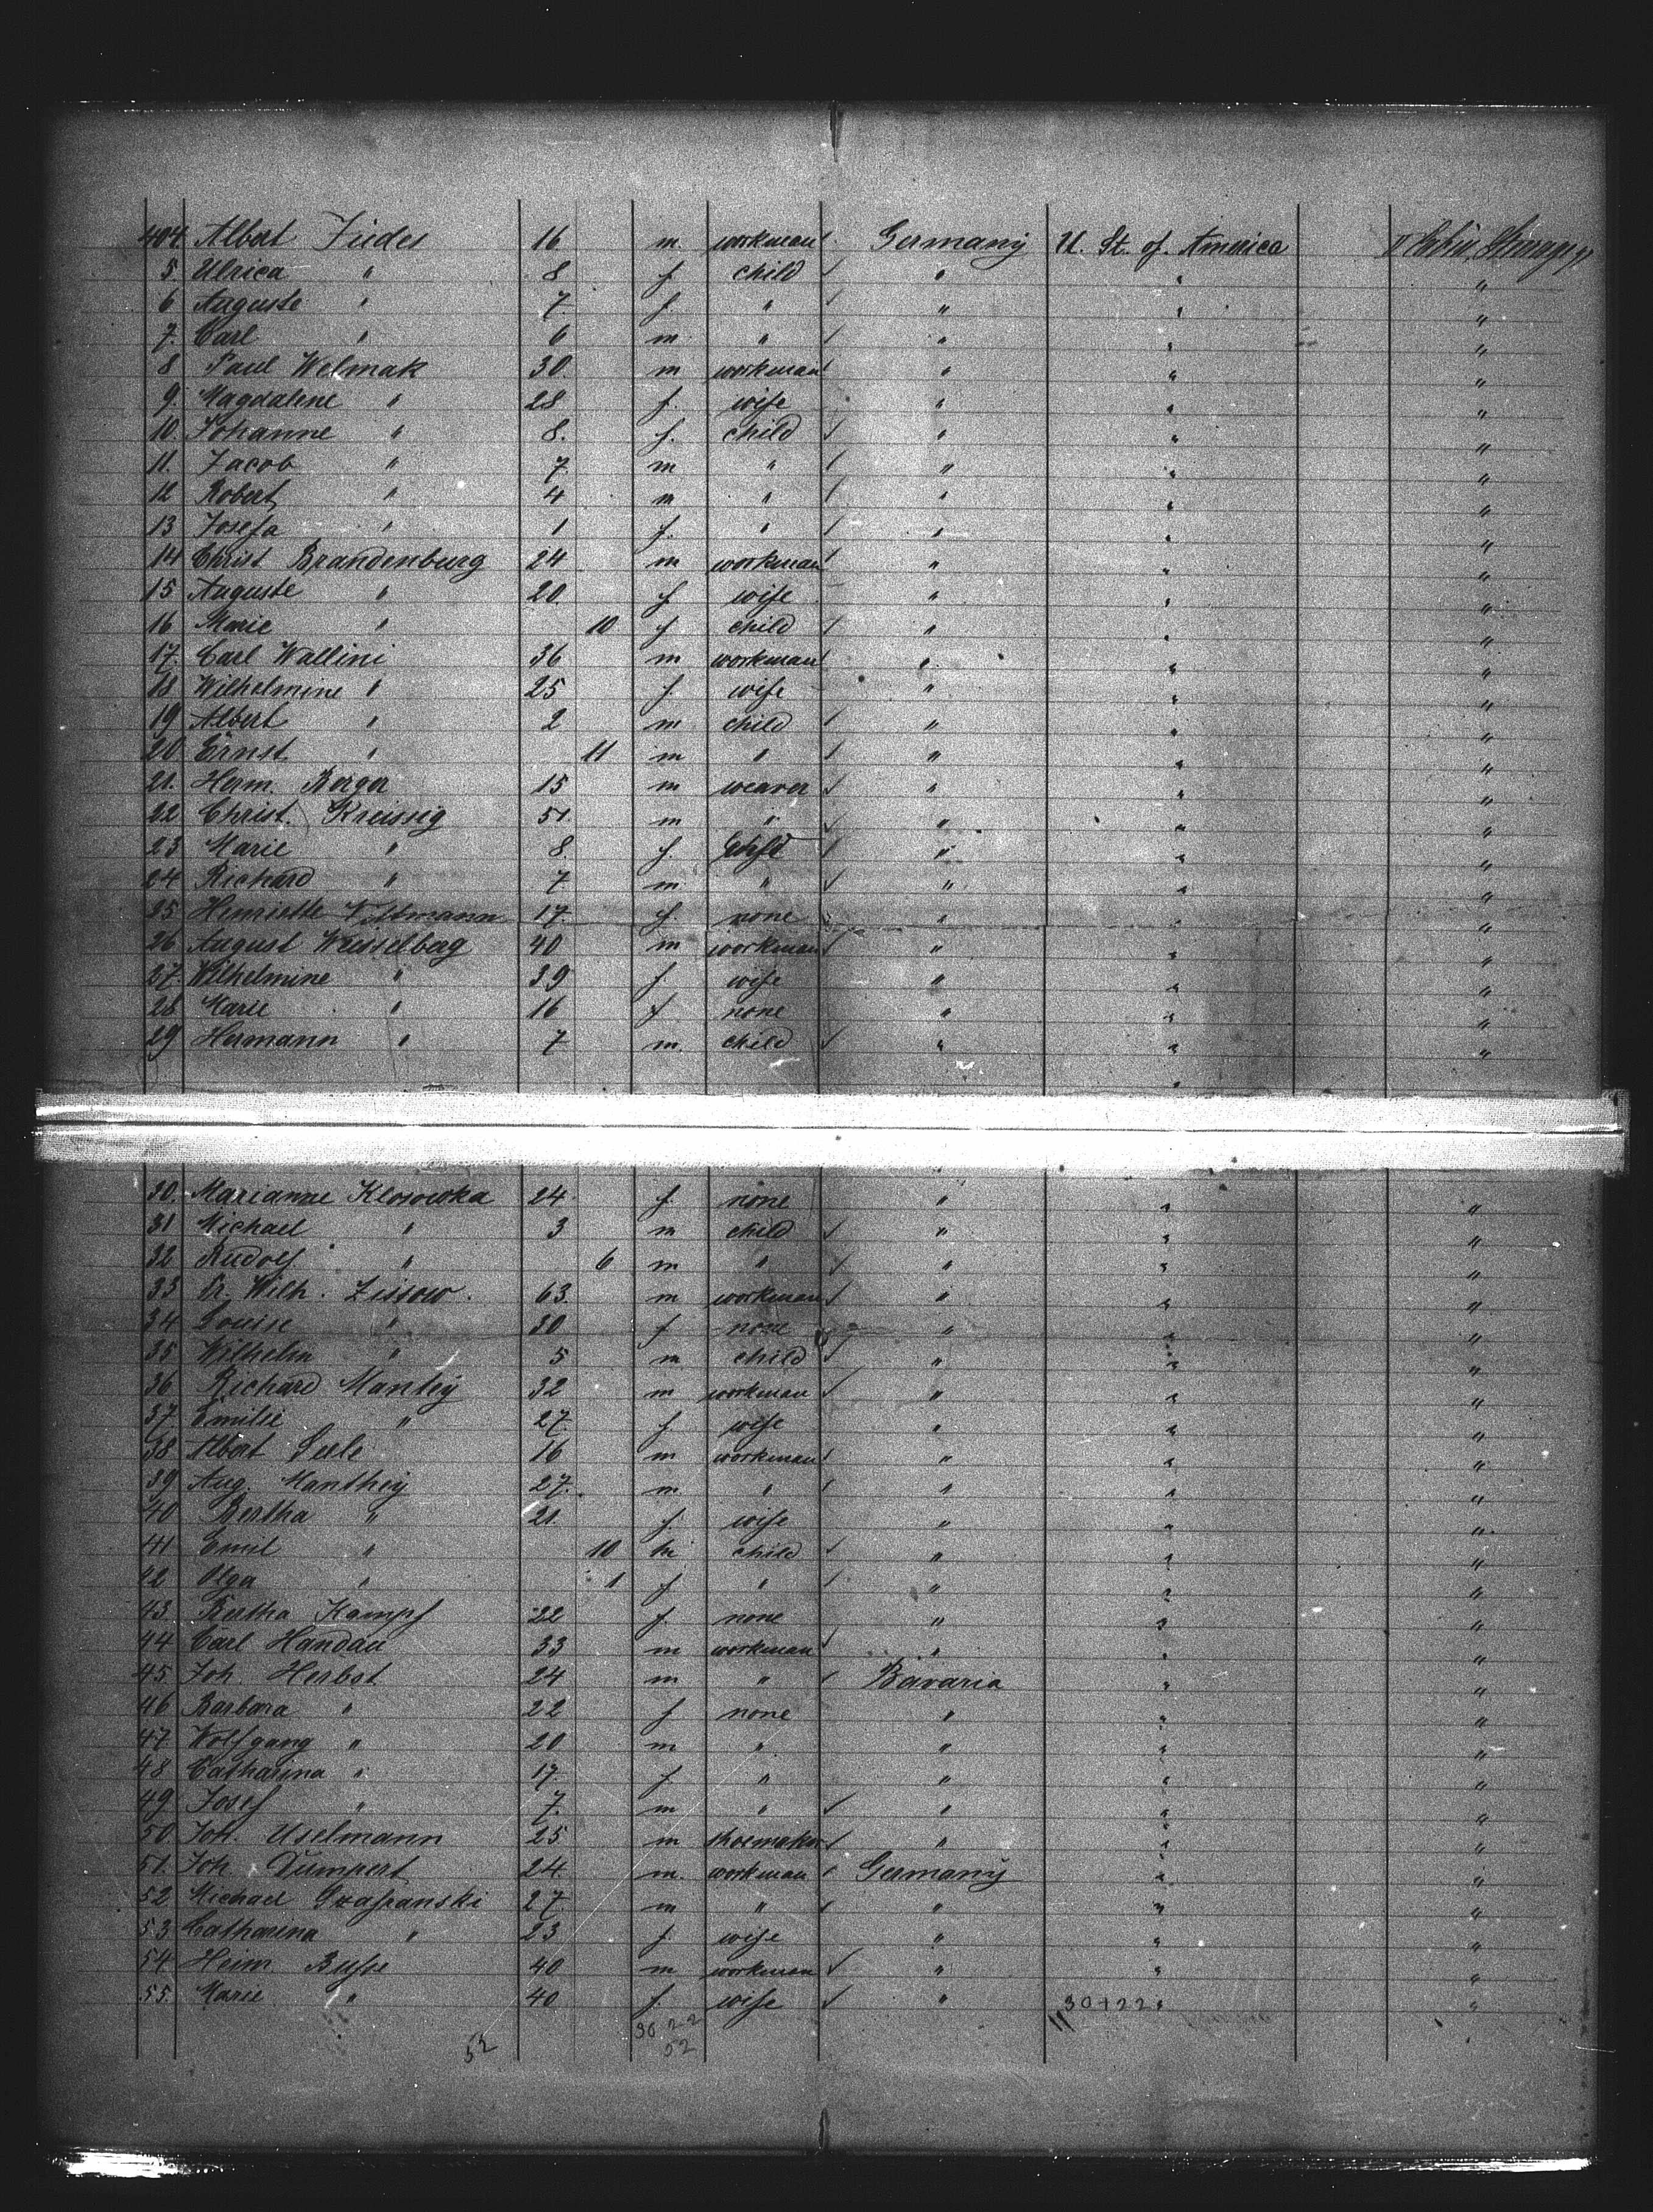 404 Albert Fudes 16 m workman Germany U. St. of America II Cabin, Steerage
5 Ulrica " 8 f child " " "
6 Auguste " 7 f. " " " "
7. Carl " 6 m " " " "
8 Paul Welmak 30. m workman " " "
9. Magdalene " 28 f. wife " " "
10. Johanne " 8. f. child " " "
11. Jacob " 7. m " " " "
12 Robert " 4 m " " " "
13 Josefa " 1 f. " " " "
14 Christ Brandenburg 24 m workman " " "
15 Auguste " 20. f wife " " "
16 Marie " 10 f child " " "
17. Carl Wallini 36 m workman " " "
18 Wilhelmine " 25 f. wife " " "
19 Albert " 2 m child " " "
20 Ernst " 11 m " " " "
21. Herm. Berger 15 m weaver " " "
22 Christ. Kreissig 51. m " " " "
23 Marie " 8. f. child " " "
24 Richard " 7 m " " " "
25 Henriette Veltmann 17. f. none " " "
26 August Wesselberg 40 m workman " " "
27. Wilhelmine " 39 f. wife " " "
28 Marie " 16 f none " " "
29 Hermann " 7 m. child " " "
30. Marianne Klosowka 24 f. none " " "
31 Michael " 3 m child " " "
32 Rudolf " 6 m " " " "
33 Fr. Wilh. Zissow. 63. m workman " " "
34 Louise " 30 f none " " "
35 Wilhelm " 5 m child " " "
36 Richard Mantey 32 m workman " " "
37. Emilie " 27. f wife " " "
38 Albert Seele 16 m workman " " "
39 Aug. Manthey 27. m " " " "
40 Bertha " 21. f. wife " " "
41. Emil " 10 m child " " "
42 Olga " 1 f " " " "
43. Bertha Kampf 22 f. none " " "
44 Carl Handau 33 m workman " " "
45. Joh. Herbst 24 m " Bavaria " "
46 Barbara " 22 f none " " "
47 Wolfgang " 20 m " " " "
48 Catharina " 17. f " " " "
49 Josef " 7. m " " " "
50. Joh. Uselmann 25 m shoemaker " " "
51. Joh. Dumpert 24. m. workman Germany " "
52 Michael Szafranski 27. m " " " "
53. Catharina " 23 f. wife " " "
54 Heinr. Busse 40 m workman " " "
55. Marie " 40 f. wife " 30+22 " "
30 22
52 52